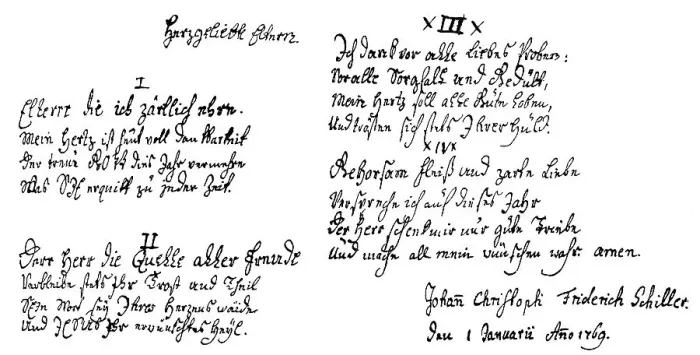 Herzgeliebte Eltern.
I
Eltern die ich zärtlich ehre.
Mein Hertz ist heut voll Danckbarkeit
Der treue Gott dies Jahr vermehre
Was Sie erquickt zu jeder Zeit.
II
Der Herr die Quelle aller Freude
Verbleibe stets Ihr Trost und Theil
Sein Wort sey Ihres Hertzens Weide
Und Jesus Ihr erwünschtes Heyl.
III
Ich danck vor alle Liebes Proben:
Vor alle Sorgfalt und Gedult,
Mein Hertz soll alle Güte loben,
Und trösten sich stets Ihrer Huld.
IV
Gehorsam Fleiß und zarte Liebe
Verspreche ich auf dieses Jahr
Der Herr schenk mir nur gute Triebe
Und mache all mein wünschen wahr. amen.
Johann Christoph Friderich Schiller.
den 1 Januarii Año 1769.